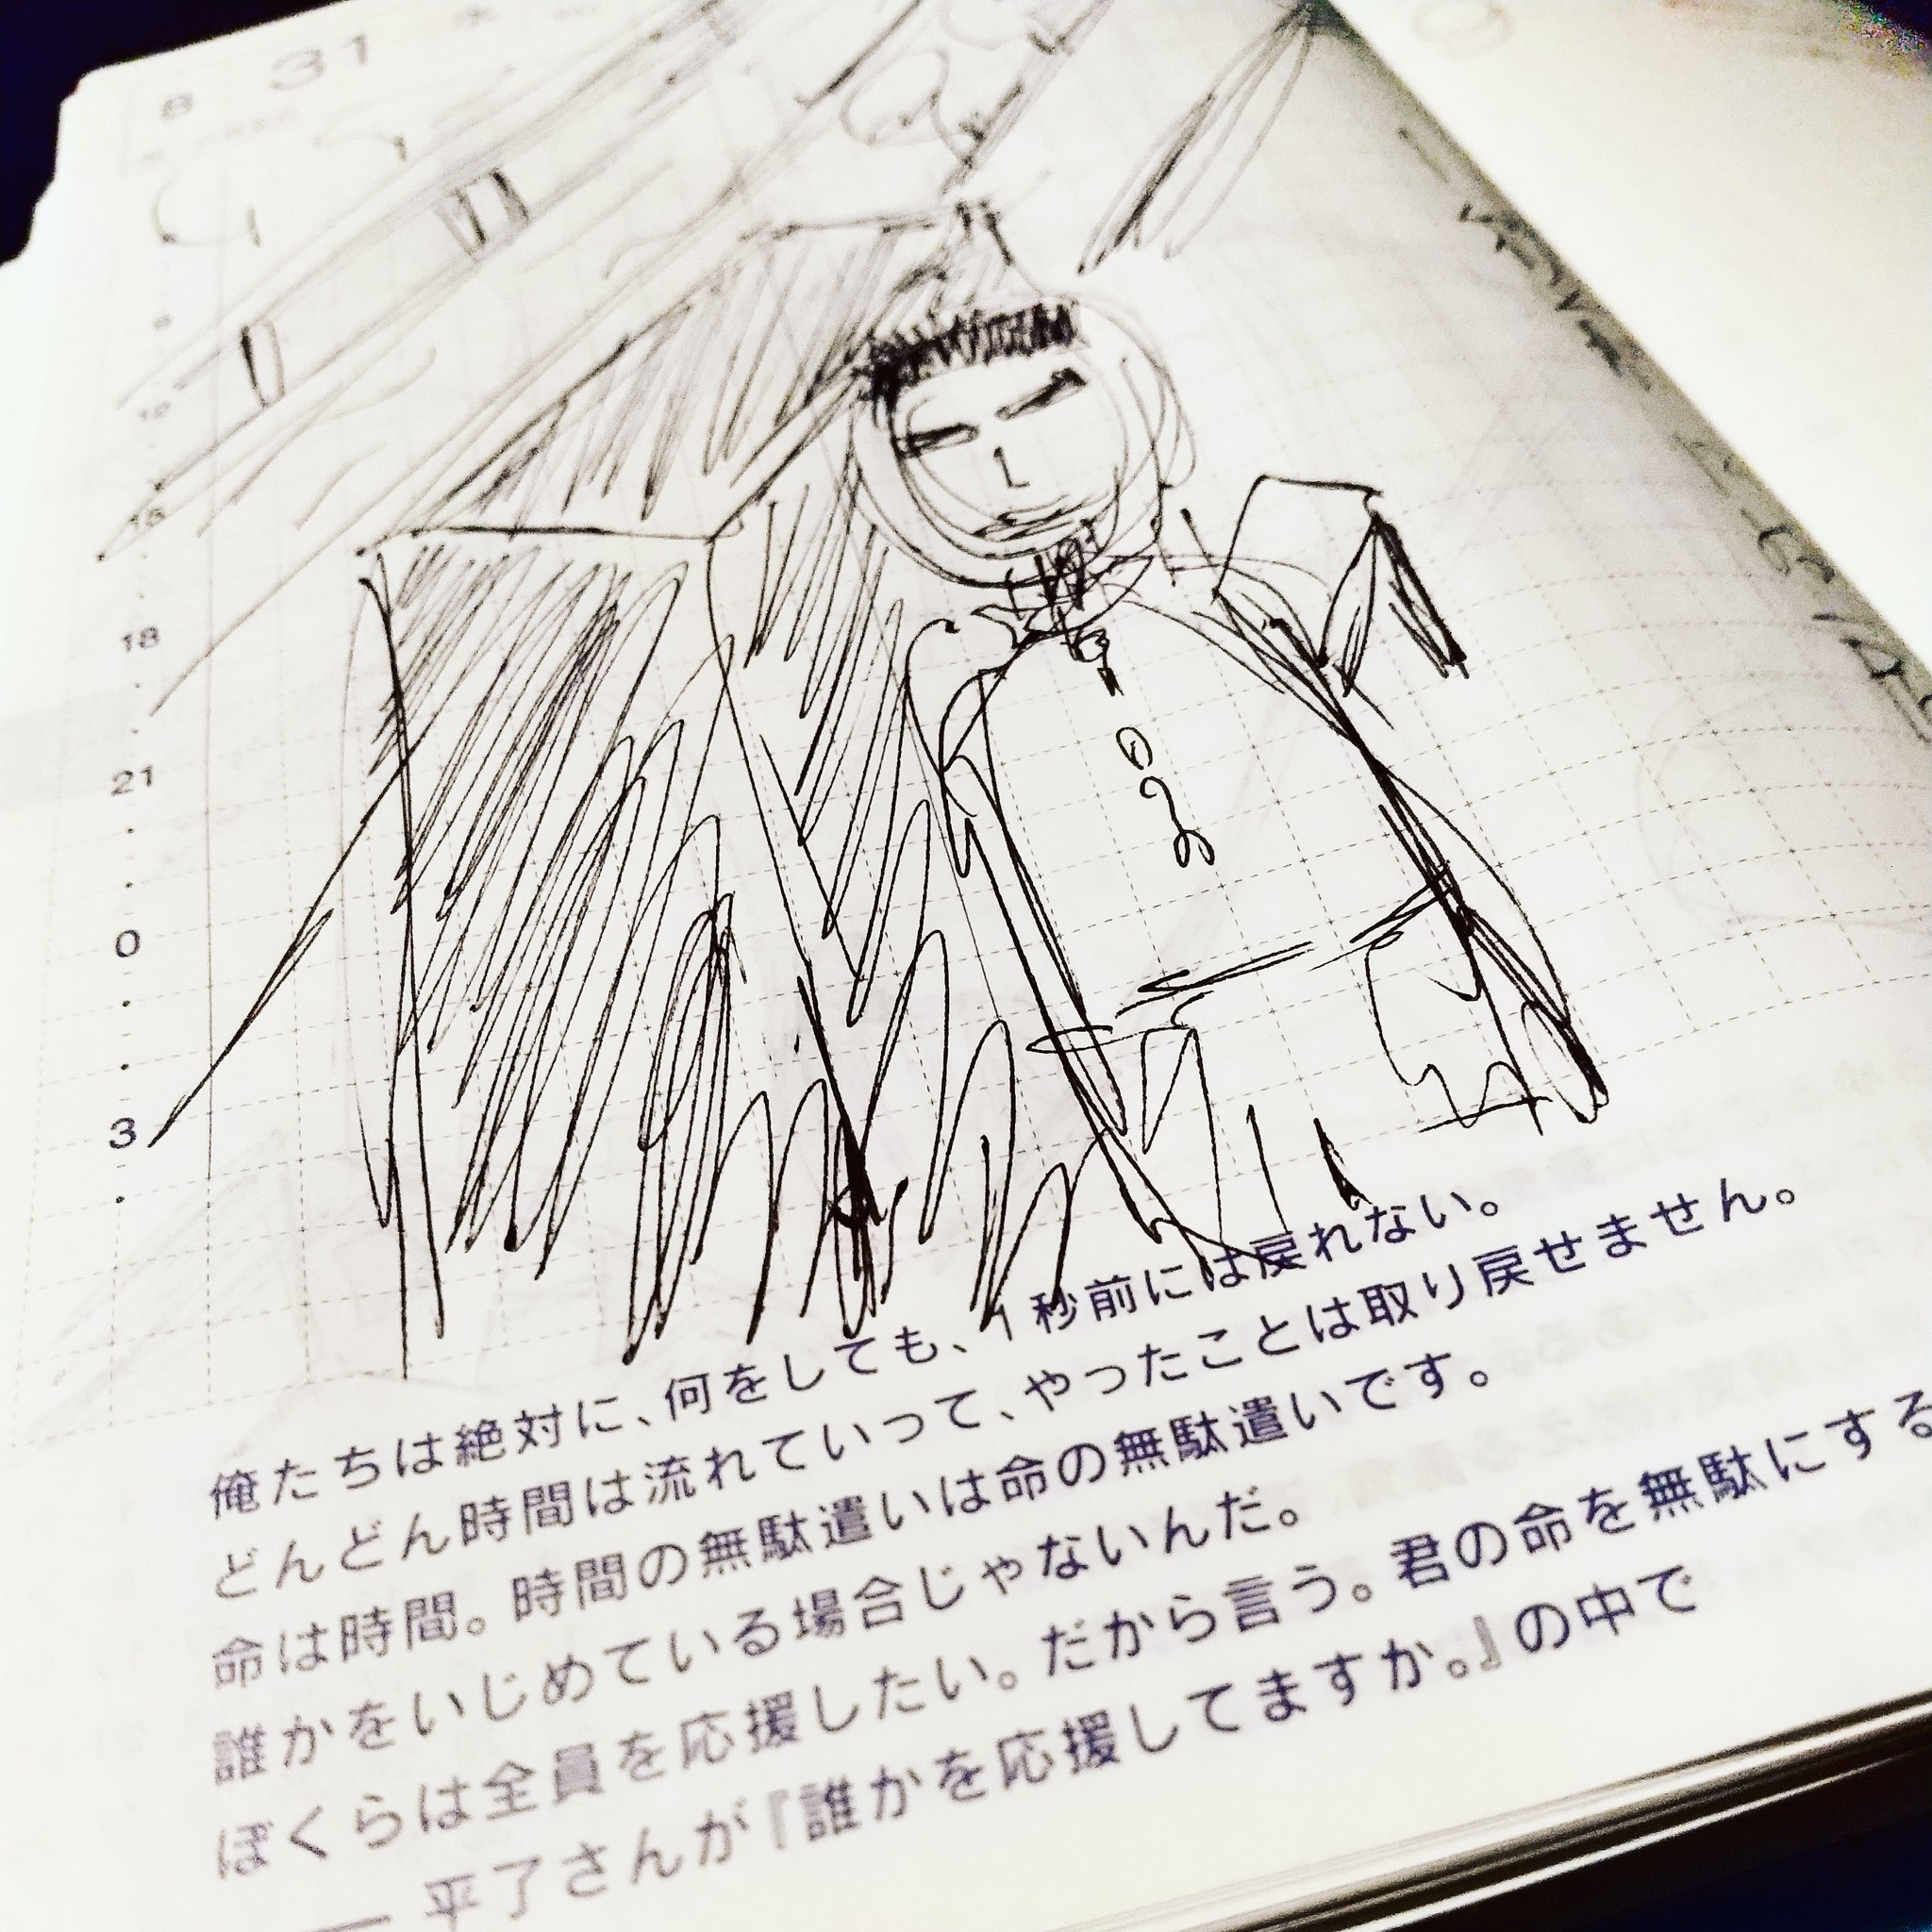 31
18
21
0
3
俺たちは絶対に、何をしても、1秒前には戻れない。
どんどん時間は流れていって、やったことは取り戻せません。
命は時間。時間の無駄遣いは命の無駄遣いです。
誰かをいじめている場合じゃないんだ。
ぼくらは全員を応援したい。だから言う。君の命を無駄にする
── 平了さんが『誰かを応援してますか。』の中で